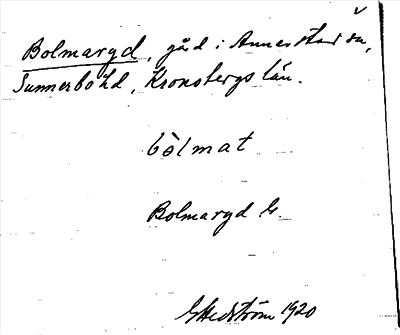 Bolmaryd, gård i Annerstad sn,
Sunnerbo hd, Kronobergs län.
bòlmat
Bolmaryd G.
G Hedström 1920